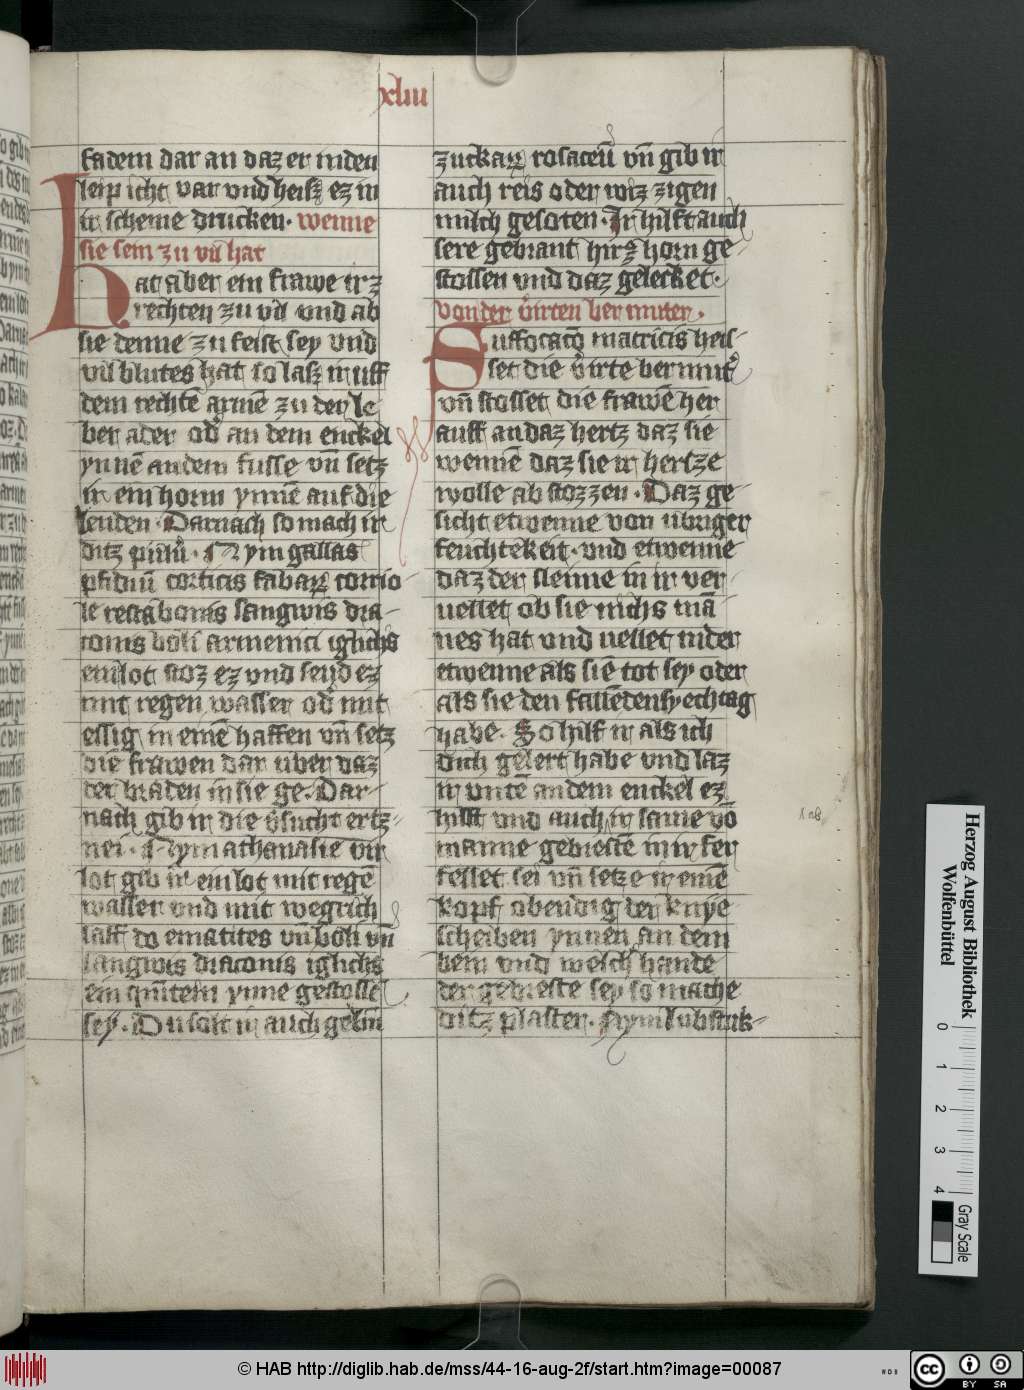 xliii
fadem dar an daz er in den
leip icht var vnd heisz ez in
ir scheme drucken· wenne
sie sem zu vil hat
Hat aber ein frawe ir z
rechten zu vil vnd ab
sie denne zu feist sey vnd
vil blutes hat so lasz ir uff
dem rechtē armē zu der le
ber ader od' an dem enckel
ynnē an dem fusse vn̄ setz
ir ein horn ynnē auf die
lenden· Darnach so mach ir
ditz · Nym gallas
psidiū corticis fabaꝝ corrio
le sangwis dra-
conis boli armenici iglichs
ein lot stoz ez vnd seyd ez
mit regen wasser od' mit
essig in einē haffen vn̄ setz
die frawen dar uber daz
der braden in sie ge· Dar-
nach gib ir die v'sucht ertz-
nei· Nym athanasie vir
lot gib ir ein lot mit regē
wasser vnd mit wegrich
saff do ematites vn̄ boli vn̄
sangwis draconis iglichs
ein quītein ynne gestossē
sey· Du solt ir auch gebin
zuckaꝝ rosaceū vn̄ gib ir
auch reis oder wiz zigen
milch gesoten· Ir hilft auch
sere gebrant hirz horn ge-
stossen vnd daz gelecket·
von der v'irten bermuter·
Suffocacō matricis heis-
set die v'irte bermut'
vn̄ stosset die frawē her
auff an daz hertz daz sie
wennē daz sie ir hertze
wolle ab stozzen· Daz ge-
sicht etwenne von ubriger
feuchtekeit· vnd etwenne
daz der sleime in ir ver-
uellet ob sie nichs mā-
nes hat vnd uellet nider
etwenne als sie tot sey oder
als sie den fallēden syechtag
habe· So hilf ir als ich
dich gelert habe vnd laz
ir vntē an dem enckel ez
hilft vnd auch ir same vō
manne gebrestē in ir fer
fellet sei vn̄ setze ir einē
kopf obendig der knye
scheiben ynnen an dem
bein vnd welch hande
der gebreste sey so mache
ditz plaster· Nym lubstuk-
Herzog August Bibliothek
Wolfenbüttel
0 1 2 3 4
Gray Scale
© HAB http://diglib.hab.de/mss/44-16-aug-2f/start.htm?image=00087
cc BY SA